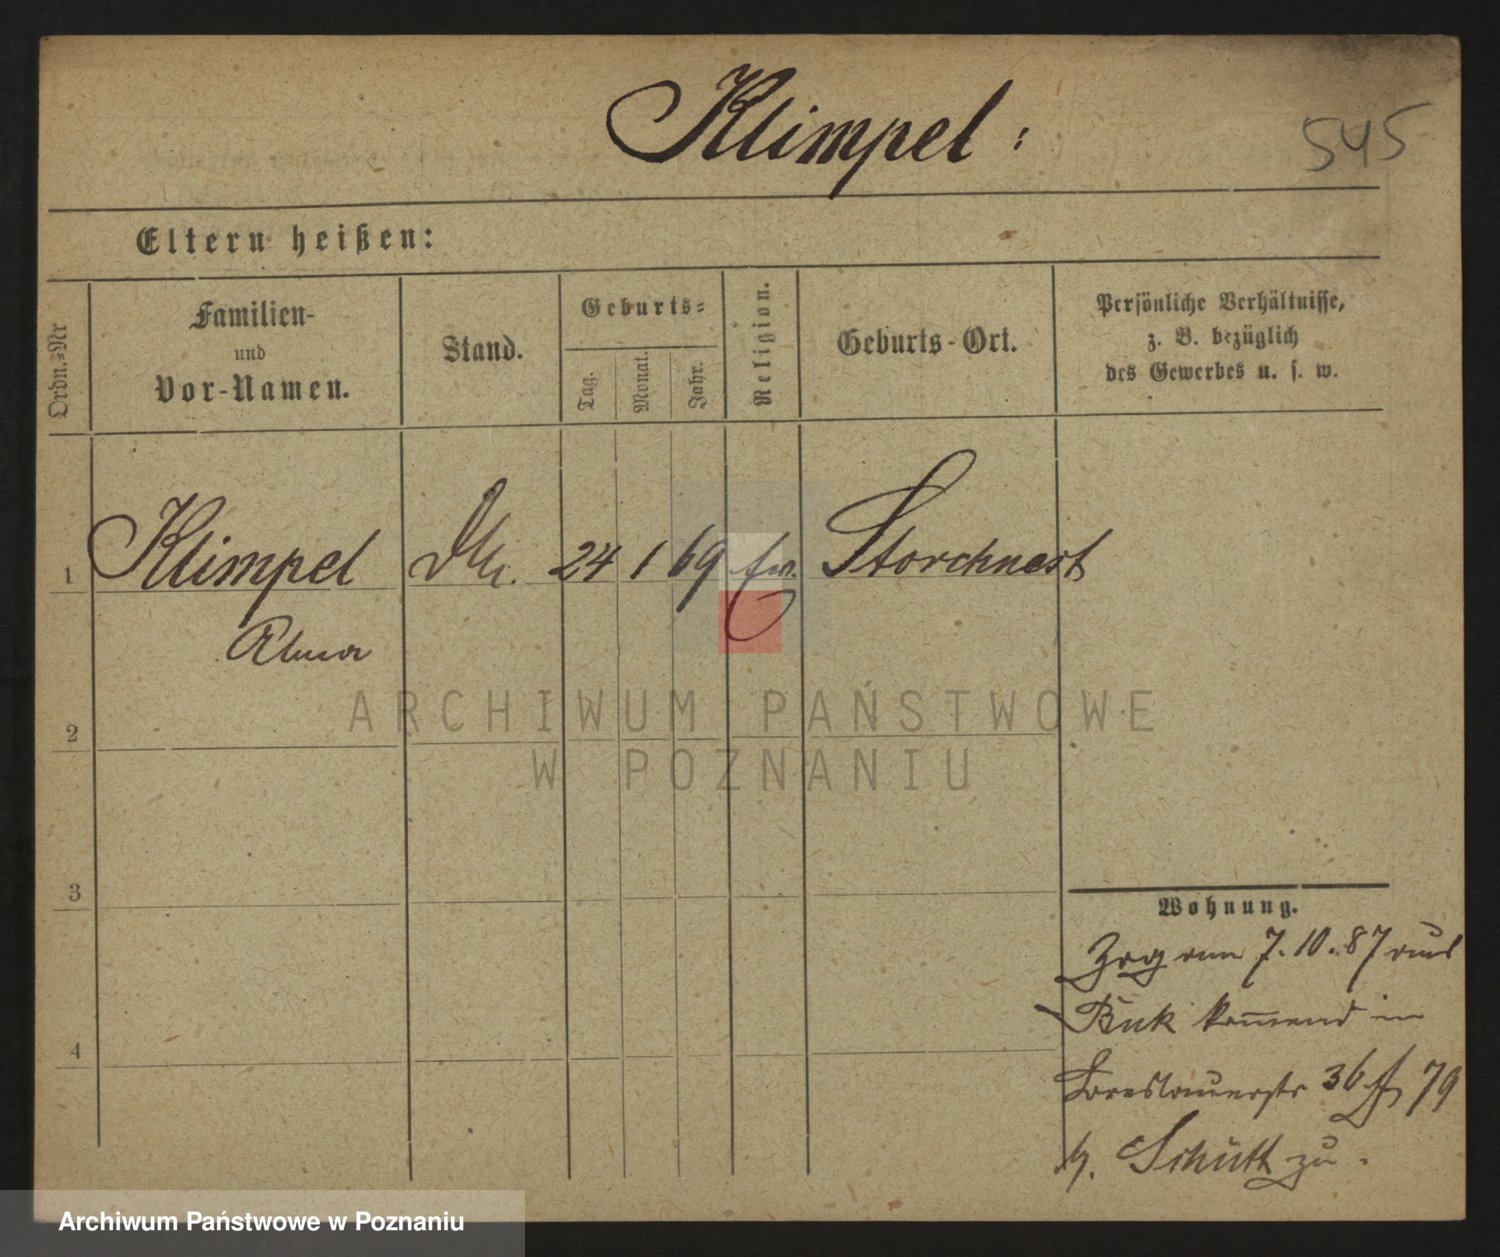 Klimpel:
545
Eltern heißen:
Ordn.=Nr
Familien-
und
Vor-Namen.
Stand.
Geburts=
Tag.
Monat.
Jahr.
Religion.
Geburts-Ort.
Persönliche Verhältnisse,
z. B. bezüglich
des Gewerbes u. s. w.
1
Klimpel
24 1 69
Storchnest
Alma
ARCHIWUM PAŃSTWOWE
W POZNANIU
2
3
4
Wohnung.
Zog am 7.10.87 aus
Buk kommend in
36 79
b. Schütt zu.
Archiwum Państwowe w Poznaniu